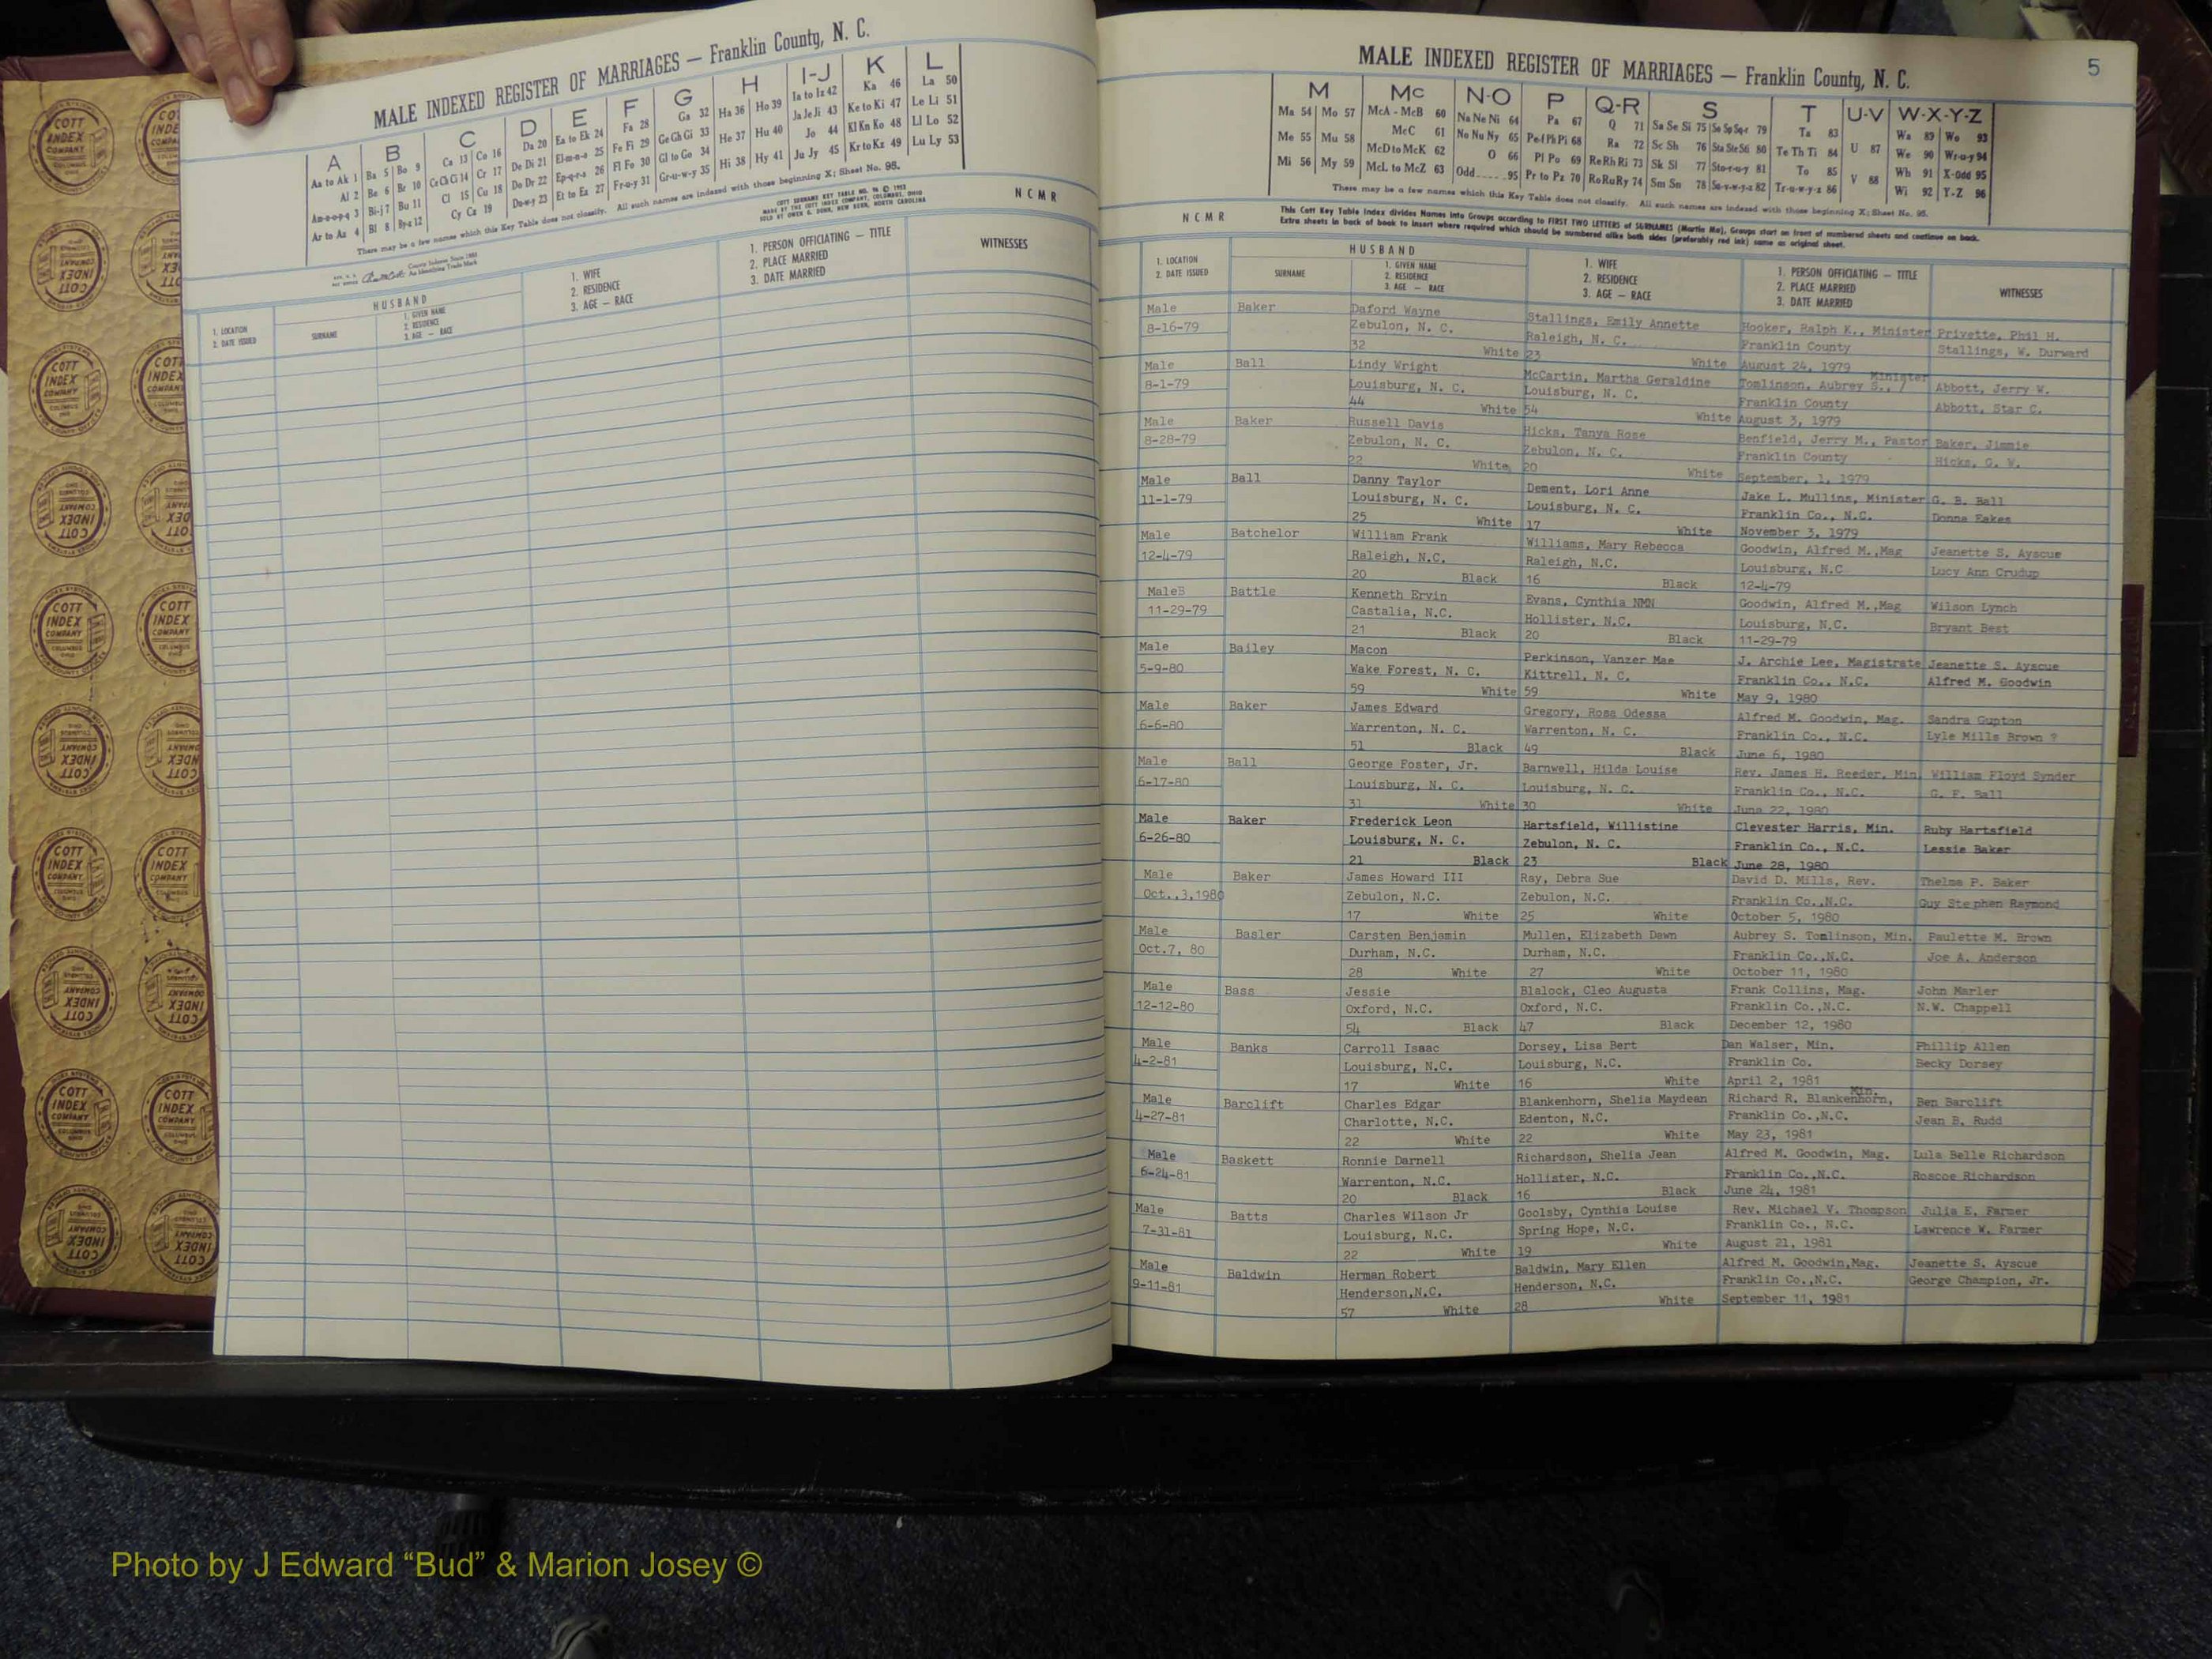 MALE INDEXED REGISTER OF MARRIAGES — Franklin County, N. C.
A B C D E F G H I-J K L
Aa to Ak 1 Ba 5 Bo 9 Ca 13 Co 16 Da 20 Ea to Ek 24 Fa 28 Ga 32 Ha 36 Ho 39 Ia to Iz 42 Ka 46 La 50
Al 2 Be 6 Br 10 Ce Ch Ci 14 Cr 17 De Di 21 El-m-n-o 25 Fe Fi 29 Ge Gh Gi 33 He 37 Hu 40 Ja Je Ji 43 Ke to Ki 47 Le Li 51
Am-n-o-p-q 3 Bi-j 7 Bu 11 Cl 15 Cu 18 Do Dr 22 Ep-q-r-s 26 Fl Fo 30 Gl to Go 34 Hi 38 Hy 41 Jo 44 Kl Kn Ko 48 Ll Lo 52
Ar to Az 4 Bl 8 By-z 12 Cy Cz 19 Du-w-y 23 Et to Ez 27 Fr-u-y 31 Gr-u-w-y 35 Ju Jy 45 Kr to Kz 49 Lu Ly 53
There may be a few names which this Key Table does not classify. All such names are indexed with those beginning X; Sheet No. 95.
COTT SURNAME KEY TABLE NO. 96 © 1953
MADE BY THE COTT INDEX COMPANY, COLUMBUS, OHIO
SOLD BY OWEN G. DUNN, NEW BERN, NORTH CAROLINA
N C M R
County Indexes Since 1888
An Identifying Trade Mark
1. LOCATION
2. DATE ISSUED
HUSBAND
SURNAME
1. GIVEN NAME
2. RESIDENCE
3. AGE — RACE
1. WIFE
2. RESIDENCE
3. AGE — RACE
1. PERSON OFFICIATING — TITLE
2. PLACE MARRIED
3. DATE MARRIED
WITNESSES
COTT
INDEX
COMPANY
COLUMBUS
OHIO
5
MALE INDEXED REGISTER OF MARRIAGES — Franklin County, N. C.
M Mc N-O P Q-R S T U-V W-X-Y-Z
Ma 54 Mo 57 McA - McB 60 Na Ne Ni 64 Pa 67 Q 71 Sa Se Si 75 So Sp Sq-r 79 Ta 83 U 87 Wa 89 Wo 93
Me 55 Mu 58 McC 61 No Nu Ny 65 Pe Pf Ph Pi 68 Ra 72 Sc Sh 76 Sta Ste Sti 80 Te Th Ti 84 V 88 We 90 Wr-u-y 94
Mi 56 My 59 McD to McK 62 O 66 Pl Po 69 Re Rh Ri 73 Sk Sl 77 Sto-r-u-y 81 To 85 Wh 91 X-Odd 95
McL to McZ 63 Odd 95 Pr to Pz 70 Ro Ru Ry 74 Sm Sn 78 Su-v-w-y-z 82 Tr-u-w-y-z 86 Wi 92 Y-Z 96
There may be a few names which this Key Table does not classify. All such names are indexed with those beginning X; Sheet No. 95.
N C M R
This Cott Key Table Index divides Names into Groups according to FIRST TWO LETTERS of SURNAMES (Martin Ma), Groups start on front of numbered sheets and continue on back.
Extra sheets in back of book to insert where required which should be numbered alike both sides (preferably red ink) same as original sheet.
1. LOCATION
2. DATE ISSUED
HUSBAND
SURNAME
1. GIVEN NAME
2. RESIDENCE
3. AGE — RACE
1. WIFE
2. RESIDENCE
3. AGE — RACE
1. PERSON OFFICIATING — TITLE
2. PLACE MARRIED
3. DATE MARRIED
WITNESSES
Male Baker Daford Wayne Stallings, Emily Annette Hooker, Ralph K., Minister Privette, Phil H.
8-16-79 Zebulon, N. C. Raleigh, N. C. Franklin County Stallings, W. Durward
32 White 23 White August 24, 1979
Male Ball Lindy Wright McCartin, Martha Geraldine Tomlinson, Aubrey S., / Minister Abbott, Jerry W.
8-1-79 Louisburg, N. C. Louisburg, N. C. Franklin County Abbott, Star C.
44 White 54 White August 3, 1979
Male Baker Russell Davis Hicks, Tanya Rose Benfield, Jerry M., Pastor Baker, Jimmie
8-28-79 Zebulon, N. C. Zebulon, N. C. Franklin County Hicks, G. W.
22 White 20 White September, 1, 1979
Male Ball Danny Taylor Dement, Lori Anne Jake L. Mullins, Minister G. B. Ball
11-1-79 Louisburg, N. C. Louisburg, N. C. Franklin Co., N.C. Donna Eakes
25 White 17 White November 3, 1979
Male Batchelor William Frank Williams, Mary Rebecca Goodwin, Alfred M.,Mag Jeanette S. Ayscue
12-4-79 Raleigh, N.C. Raleigh, N.C. Louisburg, N.C Lucy Ann Crudup
20 Black 16 Black 12-4-79
MaleB Battle Kenneth Ervin Evans, Cynthia NMN Goodwin, Alfred M.,Mag Wilson Lynch
11-29-79 Castalia, N.C. Hollister, N.C. Louisburg, N.C. Bryant Best
21 Black 20 Black 11-29-79
Male Bailey Macon Perkinson, Vanzer Mae J. Archie Lee, Magistrate Jeanette S. Ayscue
5-9-80 Wake Forest, N. C. Kittrell, N. C. Franklin Co., N.C. Alfred M. Goodwin
59 White 59 White May 9, 1980
Male Baker James Edward Gregory, Rosa Odessa Alfred M. Goodwin, Mag. Sandra Gupton
6-6-80 Warrenton, N. C. Warrenton, N. C. Franklin Co., N.C. Lyle Mills Brown ?
51 Black 49 Black June 6, 1980
Male Ball George Foster, Jr. Barnwell, Hilda Louise Rev. James H. Reeder, Min. William Floyd Synder
6-17-80 Louisburg, N. C. Louisburg, N. C. Franklin Co., N.C. G. F. Ball
31 White 30 White June 22, 1980
Male Baker Frederick Leon Hartsfield, Willistine Clevester Harris, Min. Ruby Hartsfield
6-26-80 Louisburg, N. C. Zebulon, N. C. Franklin Co., N.C. Lessie Baker
21 Black 23 Black June 28, 1980
Male Baker James Howard III Ray, Debra Sue David D. Mills, Rev. Thelma P. Baker
Oct.,3,1980 Zebulon, N.C. Zebulon, N.C. Franklin Co.,N.C. Guy Stephen Raymond
17 White 25 White October 5, 1980
Male Basler Carsten Benjamin Mullen, Elizabeth Dawn Aubrey S. Tomlinson, Min. Paulette M. Brown
Oct.7, 80 Durham, N.C. Durham, N.C. Franklin Co.,N.C. Joe A. Anderson
28 White 27 White October 11, 1980
Male Bass Jessie Blalock, Cleo Augusta Frank Collins, Mag. John Marler
12-12-80 Oxford, N.C. Oxford, N.C. Franklin Co.,N.C. N.W. Chappell
54 Black 47 Black December 12, 1980
Male Banks Carroll Isaac Dorsey, Lisa Bert Dan Walser, Min. Phillip Allen
4-2-81 Louisburg, N.C. Louisburg, N.C. Franklin Co. Becky Dorsey
17 White 16 White April 2, 1981
Male Barclift Charles Edgar Blankenhorn, Shelia Maydean Richard R. Blankenhorn, Min. Ben Barclift
4-27-81 Charlotte, N.C. Edenton, N.C. Franklin Co.,N.C. Jean B. Rudd
22 White 22 White May 23, 1981
Male Baskett Ronnie Darnell Richardson, Shelia Jean Alfred M. Goodwin, Mag. Lula Belle Richardson
6-24-81 Warrenton, N.C. Hollister, N.C. Franklin Co.,N.C. Roscoe Richardson
20 Black 16 Black June 24, 1981
Male Batts Charles Wilson Jr Goolsby, Cynthia Louise Rev. Michael V. Thompson Julia E. Farmer
7-31-81 Louisburg, N.C. Spring Hope, N.C. Franklin Co., N.C. Lawrence W. Farmer
22 White 19 White August 21, 1981
Male Baldwin Herman Robert Baldwin, Mary Ellen Alfred M. Goodwin,Mag. Jeanette S. Ayscue
9-11-81 Henderson,N.C. Henderson, N.C. Franklin Co.,N.C. George Champion, Jr.
57 White 28 White September 11, 1981
Photo by J Edward “Bud” & Marion Josey ©